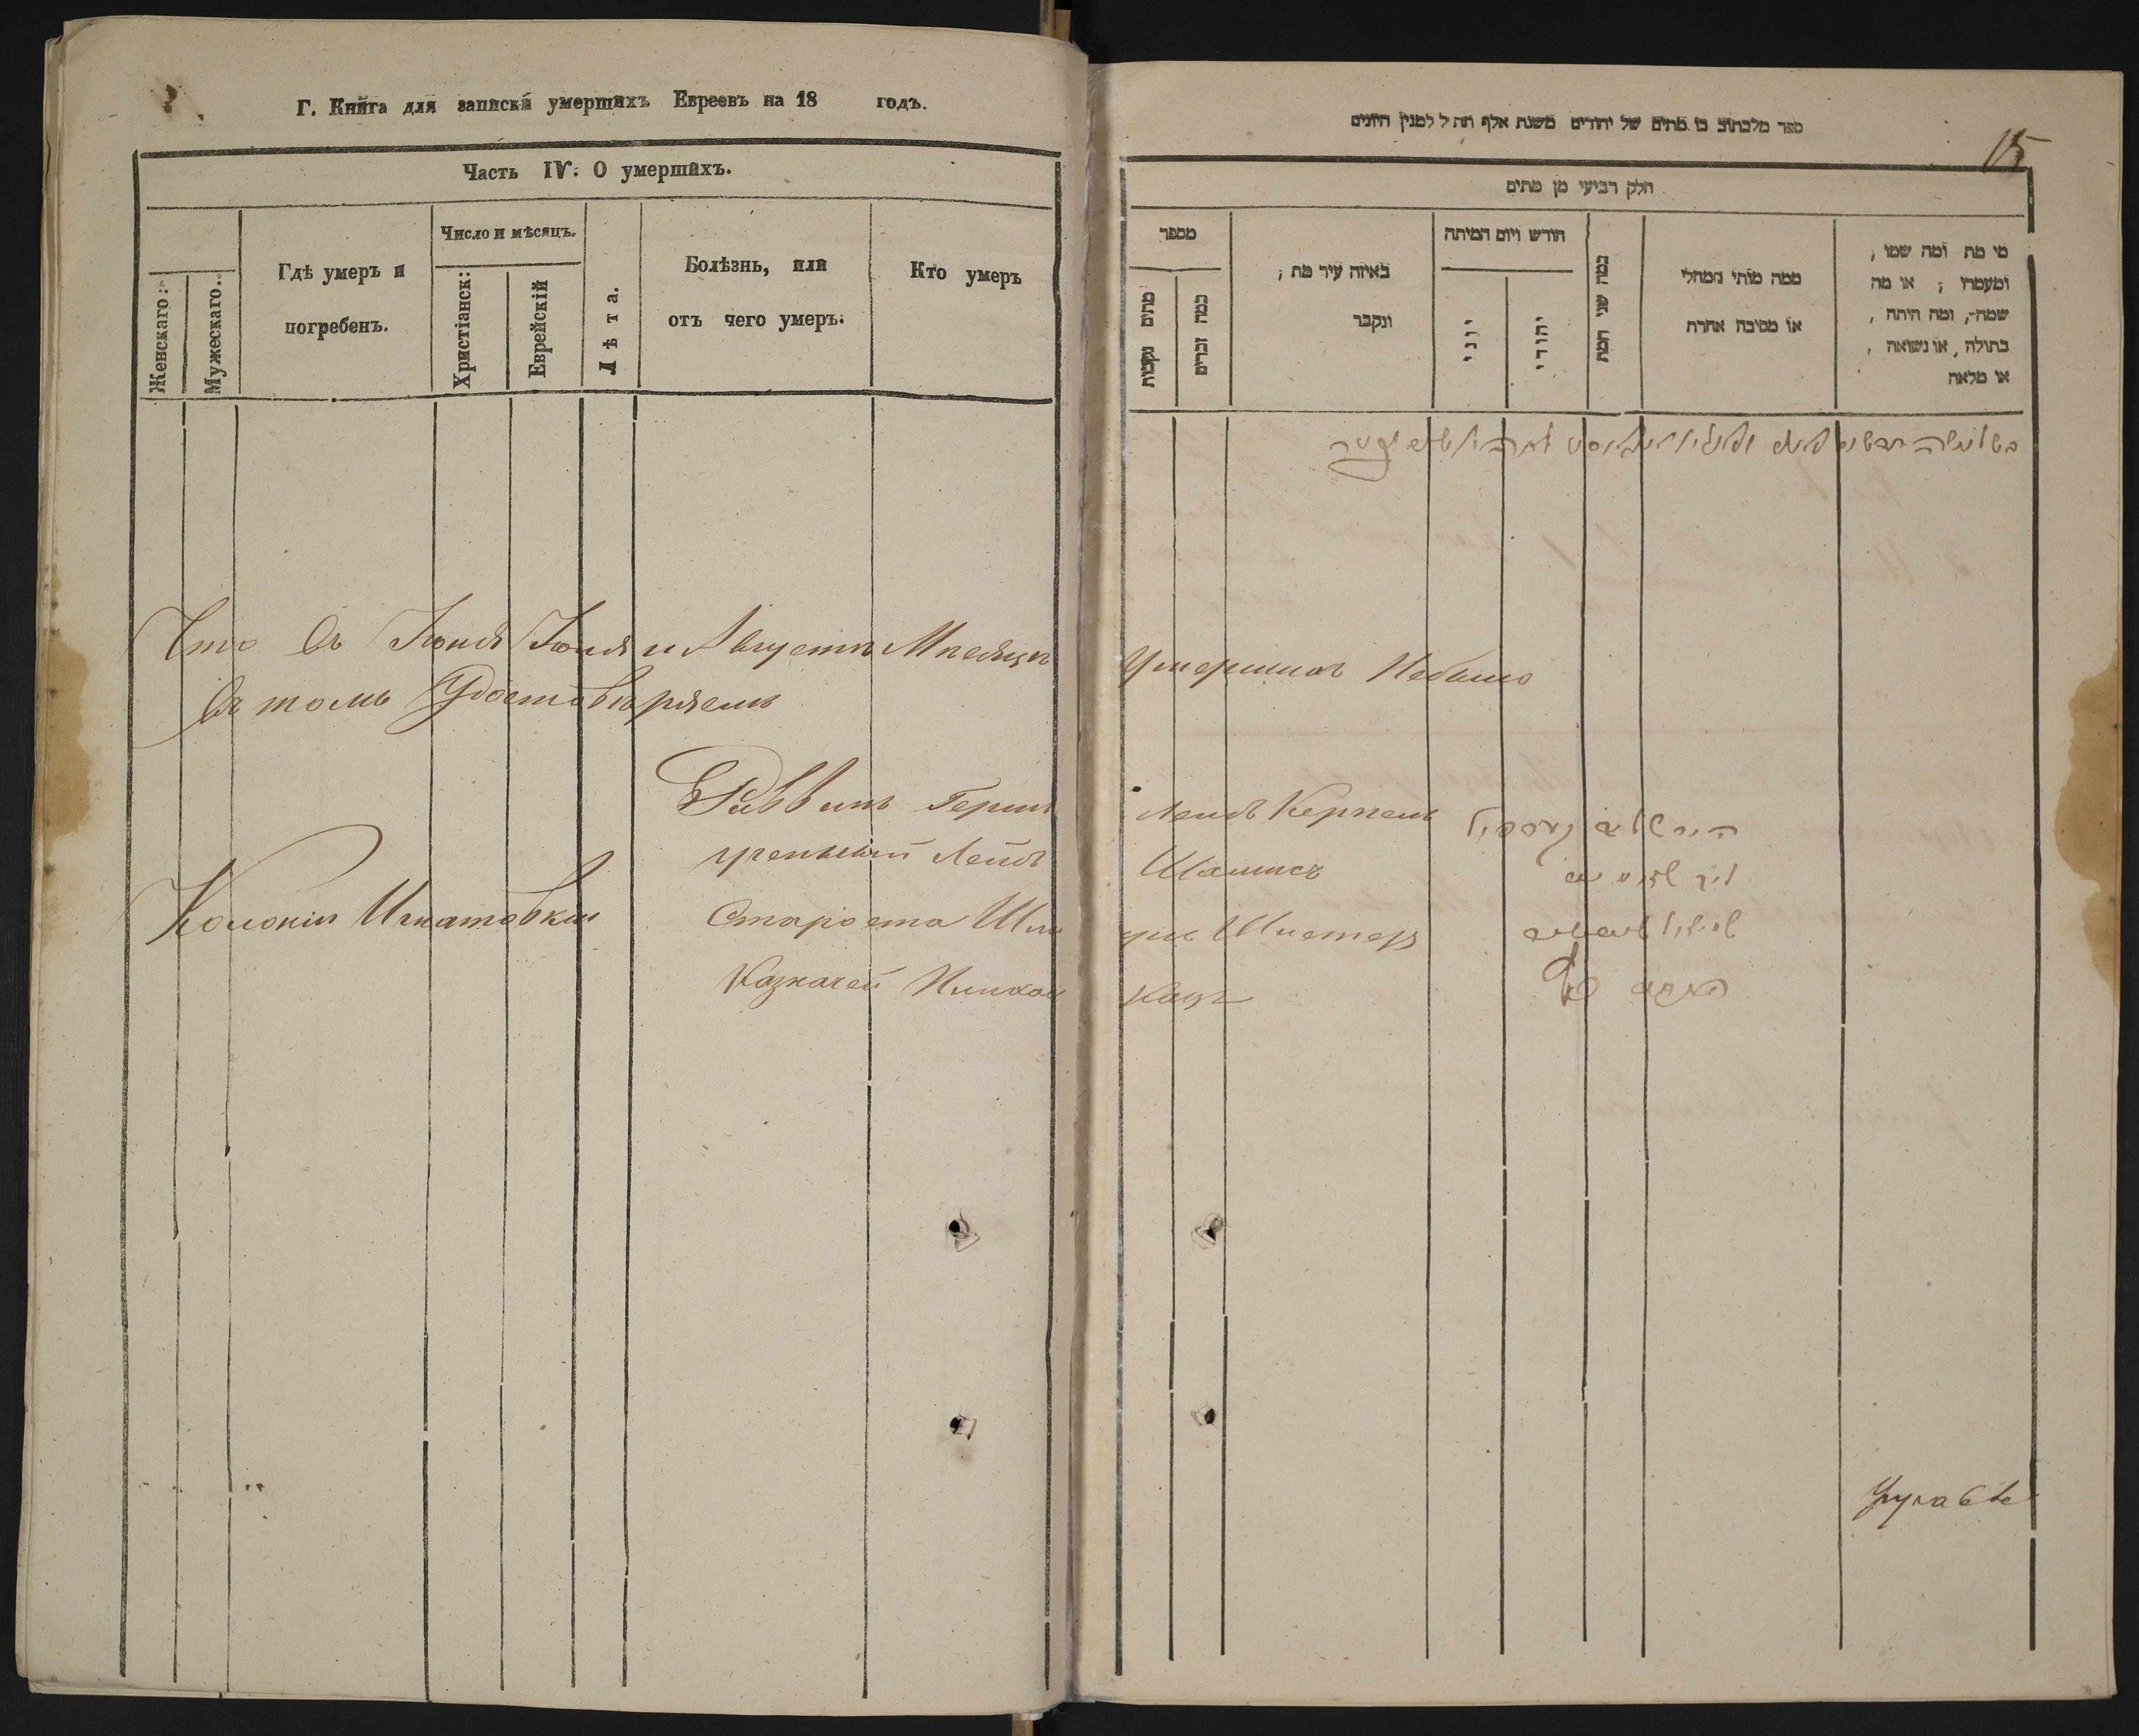 Г. Книга для записки умершихъ Евреевъ на 18 годъ.
Часть IV. О умершихъ.
Женскаго:
Мужескаго.
Гдѣ умеръ и
погребенъ.
Число и мѣсяцъ.
Христіанск:
Еврейскій
Лѣта.
Болѣзнь, или
отъ чего умеръ.
Кто умеръ
Что въ Іюнѣ Іюлѣ и Августѣ Мѣсяцѣ Умершихъ Небыло
Въ томъ Удостовѣряемъ
Раввинъ Гершъ Лейбъ Керпель
ученый Лейбъ Шамисъ
Колоніи Игнатовки
Староста Шмуиль Шистеръ
Казначей Пинхас Кацъ
ספר מלכתוב בו מתים של יהודים משנת אלף תת״ל למנין היונים
15
חלק רביעי מן מתים
מספר
מתים נקבות
כמה זכרים
באיזה עיר מת ,
ונקבר
חודש ויום המיתה
יוני
יהודי
כמה שני המת
ממה מותי המחלי
או מסיבה אחרת
מי מת ומה שמו ,
ומעמדו ; או מה
שמה, ומה היתה ,
בתולה, או נשואה ,
או מלאה